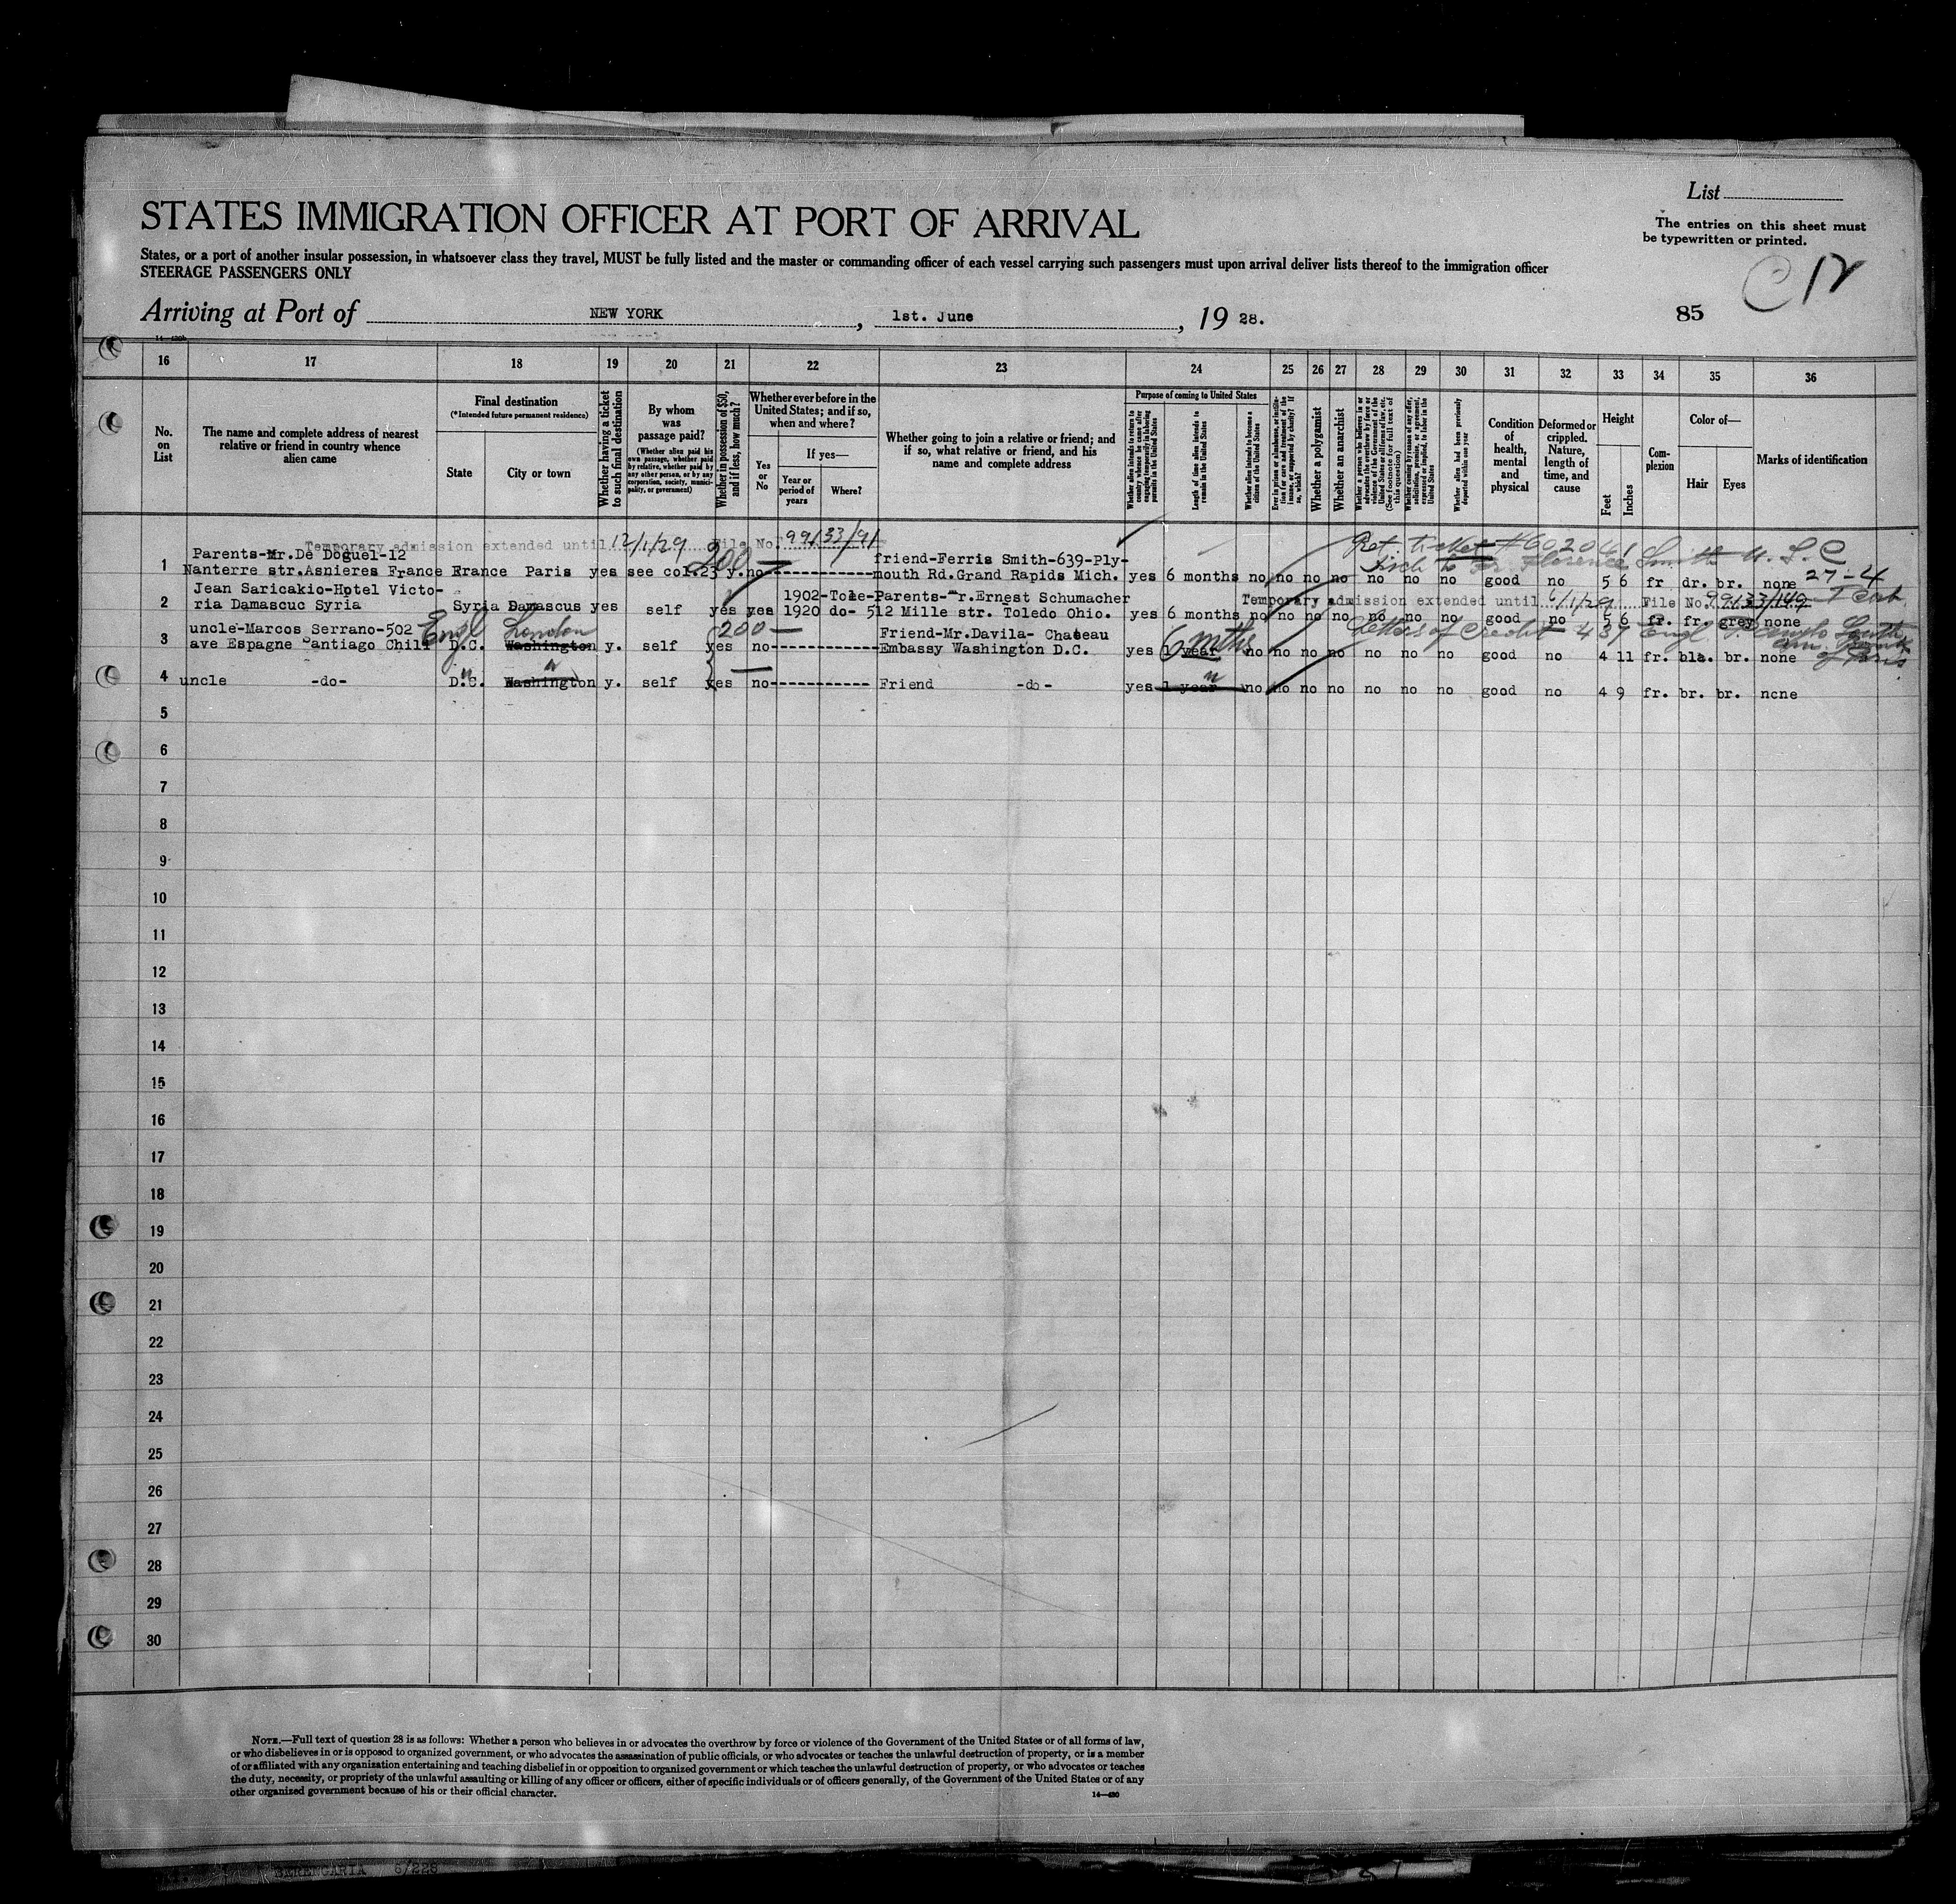 List
STATES IMMIGRATION OFFICER AT PORT OF ARRIVAL
The entries on this sheet must
be typewritten or printed.
States, or a port of another insular possession, in whatsoever class they travel, MUST be fully listed and the master or commanding officer of each vessel carrying such passengers must upon arrival deliver lists thereof to the immigration officer
STEERAGE PASSENGERS ONLY
C 12
Arriving at Port of NEW YORK, 1st. June, 19 28.
85
16 17 18 19 20 21 22 23 24 25 26 27 28 29 30 31 32 33 34 35 36
No. on List
The name and complete address of nearest relative or friend in country whence alien came
Final destination
(*Intended future permanent residence)
State
City or town
Whether having a ticket to such final destination
By whom was passage paid?
(Whether alien paid his own passage, whether paid by relative, whether paid by any other person, or by any corporation, society, municipality, or government)
Whether in possession of $50, and if less, how much?
Whether ever before in the United States; and if so, when and where?
Yes or No
If yes—
Year or period of years
Where?
Whether going to join a relative or friend; and if so, what relative or friend, and his name and complete address
Purpose of coming to United States
Whether alien intends to return to country whence he came after engaging temporarily in laboring pursuits in the United States
Length of time alien intends to remain in the United States
Whether alien intends to become a citizen of the United States
Ever in prison or almshouse, or institution for care and treatment of the insane, or supported by charity? If so, which?
Whether a polygamist
Whether an anarchist
Whether a person who believes in or advocates the overthrow by force or violence of the Government of the United States or all forms of law, etc. (See footnote for full text of this question)
Whether coming by reason of any offer, solicitation, promise, or agreement, expressed or implied, to labor in the United States
Whether alien had been previously deported within one year
Condition of health, mental and physical
Deformed or crippled. Nature, length of time, and cause
Height
Feet
Inches
Complexion
Color of—
Hair
Eyes
Marks of identification
Temporary admission extended until 12/1/29 File No. 99133/91
Ret. ticket #602041 Smith U.S.C
27-4
1 Parents-Mr.De Doguel-12
Nanterre str.Asnieres France France Paris yes see col.23 y. 200 no friend-Ferris Smith-639-Ply-
mouth Rd.Grand Rapids Mich. yes 6 months no no no no no no no good no 5 6 fr dr. br. none
Temporary admission extended until 6/1/29 File No. 99133/149
2 Jean Saricakio-Hotel Victo-
ria Damascuc Syria Syria Damascus yes self yes yes 1902-Tole-
1920 do- Parents-Mr.Ernest Schumacher
512 Mille str. Toledo Ohio. yes 6 months no no no no no no no good no 5 6 fr. fr. grey none
Letters of Credit 437 Engl
3 uncle-Marcos Serrano-502
ave Espagne Santiago Chili Engl London D.C. Washington y. self yes 200 no Friend-Mr.Davila- Chateau
Embassy Washington D.C. yes 6 mths 1 year no no no no no no no good no 4 11 fr. bla. br. none
4 uncle -do- " D.C. " Washington y. self yes no Friend -do- yes " 1 year no no no no no no no good no 4 9 fr. br. br. none
5
6
7
8
9
10
11
12
13
14
15
16
17
18
19
20
21
22
23
24
25
26
27
28
29
30
NOTE.—Full text of question 28 is as follows: Whether a person who believes in or advocates the overthrow by force or violence of the Government of the United States or of all forms of law,
or who disbelieves in or is opposed to organized government, or who advocates the assassination of public officials, or who advocates or teaches the unlawful destruction of property, or is a member
of or affiliated with any organization entertaining and teaching disbelief in or opposition to organized government or which teaches the unlawful destruction of property, or who advocates or teaches
the duty, necessity, or propriety of the unlawful assaulting or killing of any officer or officers, either of specific individuals or of officers generally, of the Government of the United States or of any
other organized government because of his or their official character.
14—430
BERENGARIA 6/228